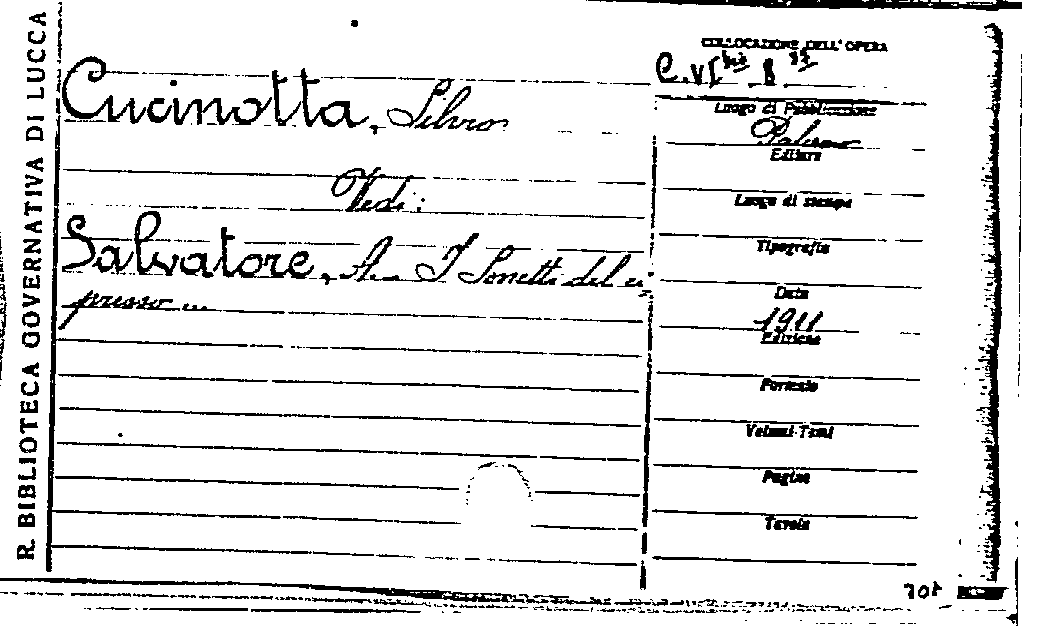 R. BIBLIOTECA GOVERNATIVA DI LUCCA
Cucinotta, Silvio
Vedi:
Salvatore, A. I Sonetti del ci-
presso ...
COLLOCAZIONE DELL' OPERA
C.VI bis 8
Luogo di Pubblicazione
Palermo
Editore
Luogo di stampa
Tipografia
Data
1911
Edizione
Formato
Volumi-Tomi
Pagine
Tavole